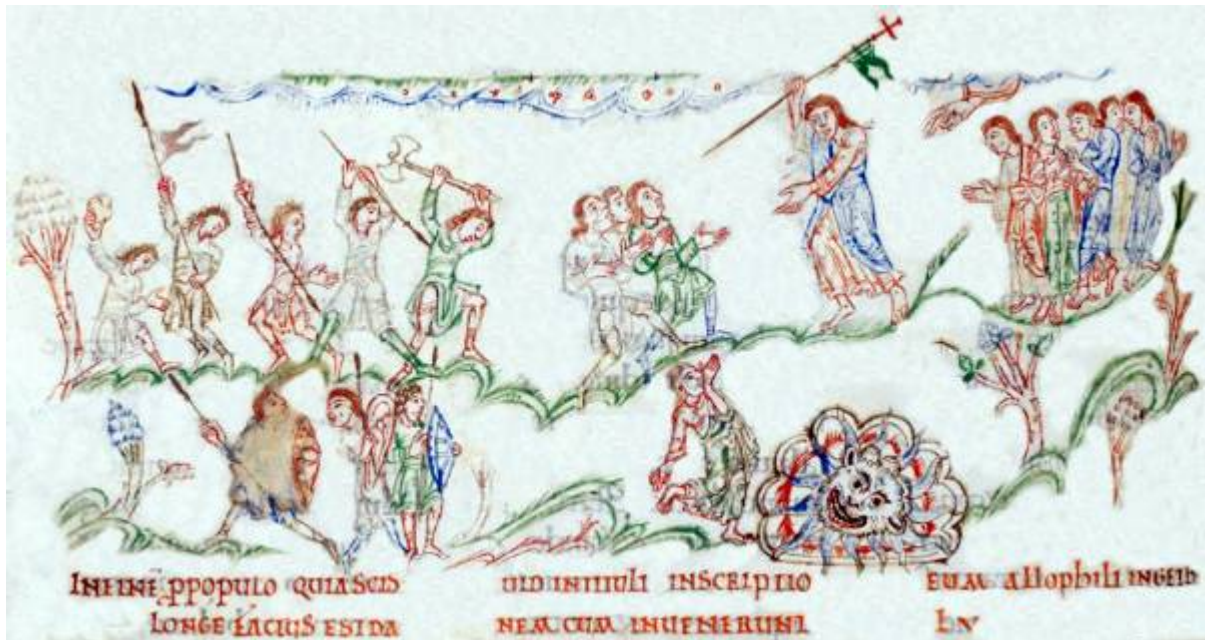 INFINĒ PPOPULO QUIASCIS
LONGE FACTUS EST DA
UID INTITULI INSCRIPTIO
NEM CUM INUENERUNT
EUM ALLOPHILI INGETH
LV